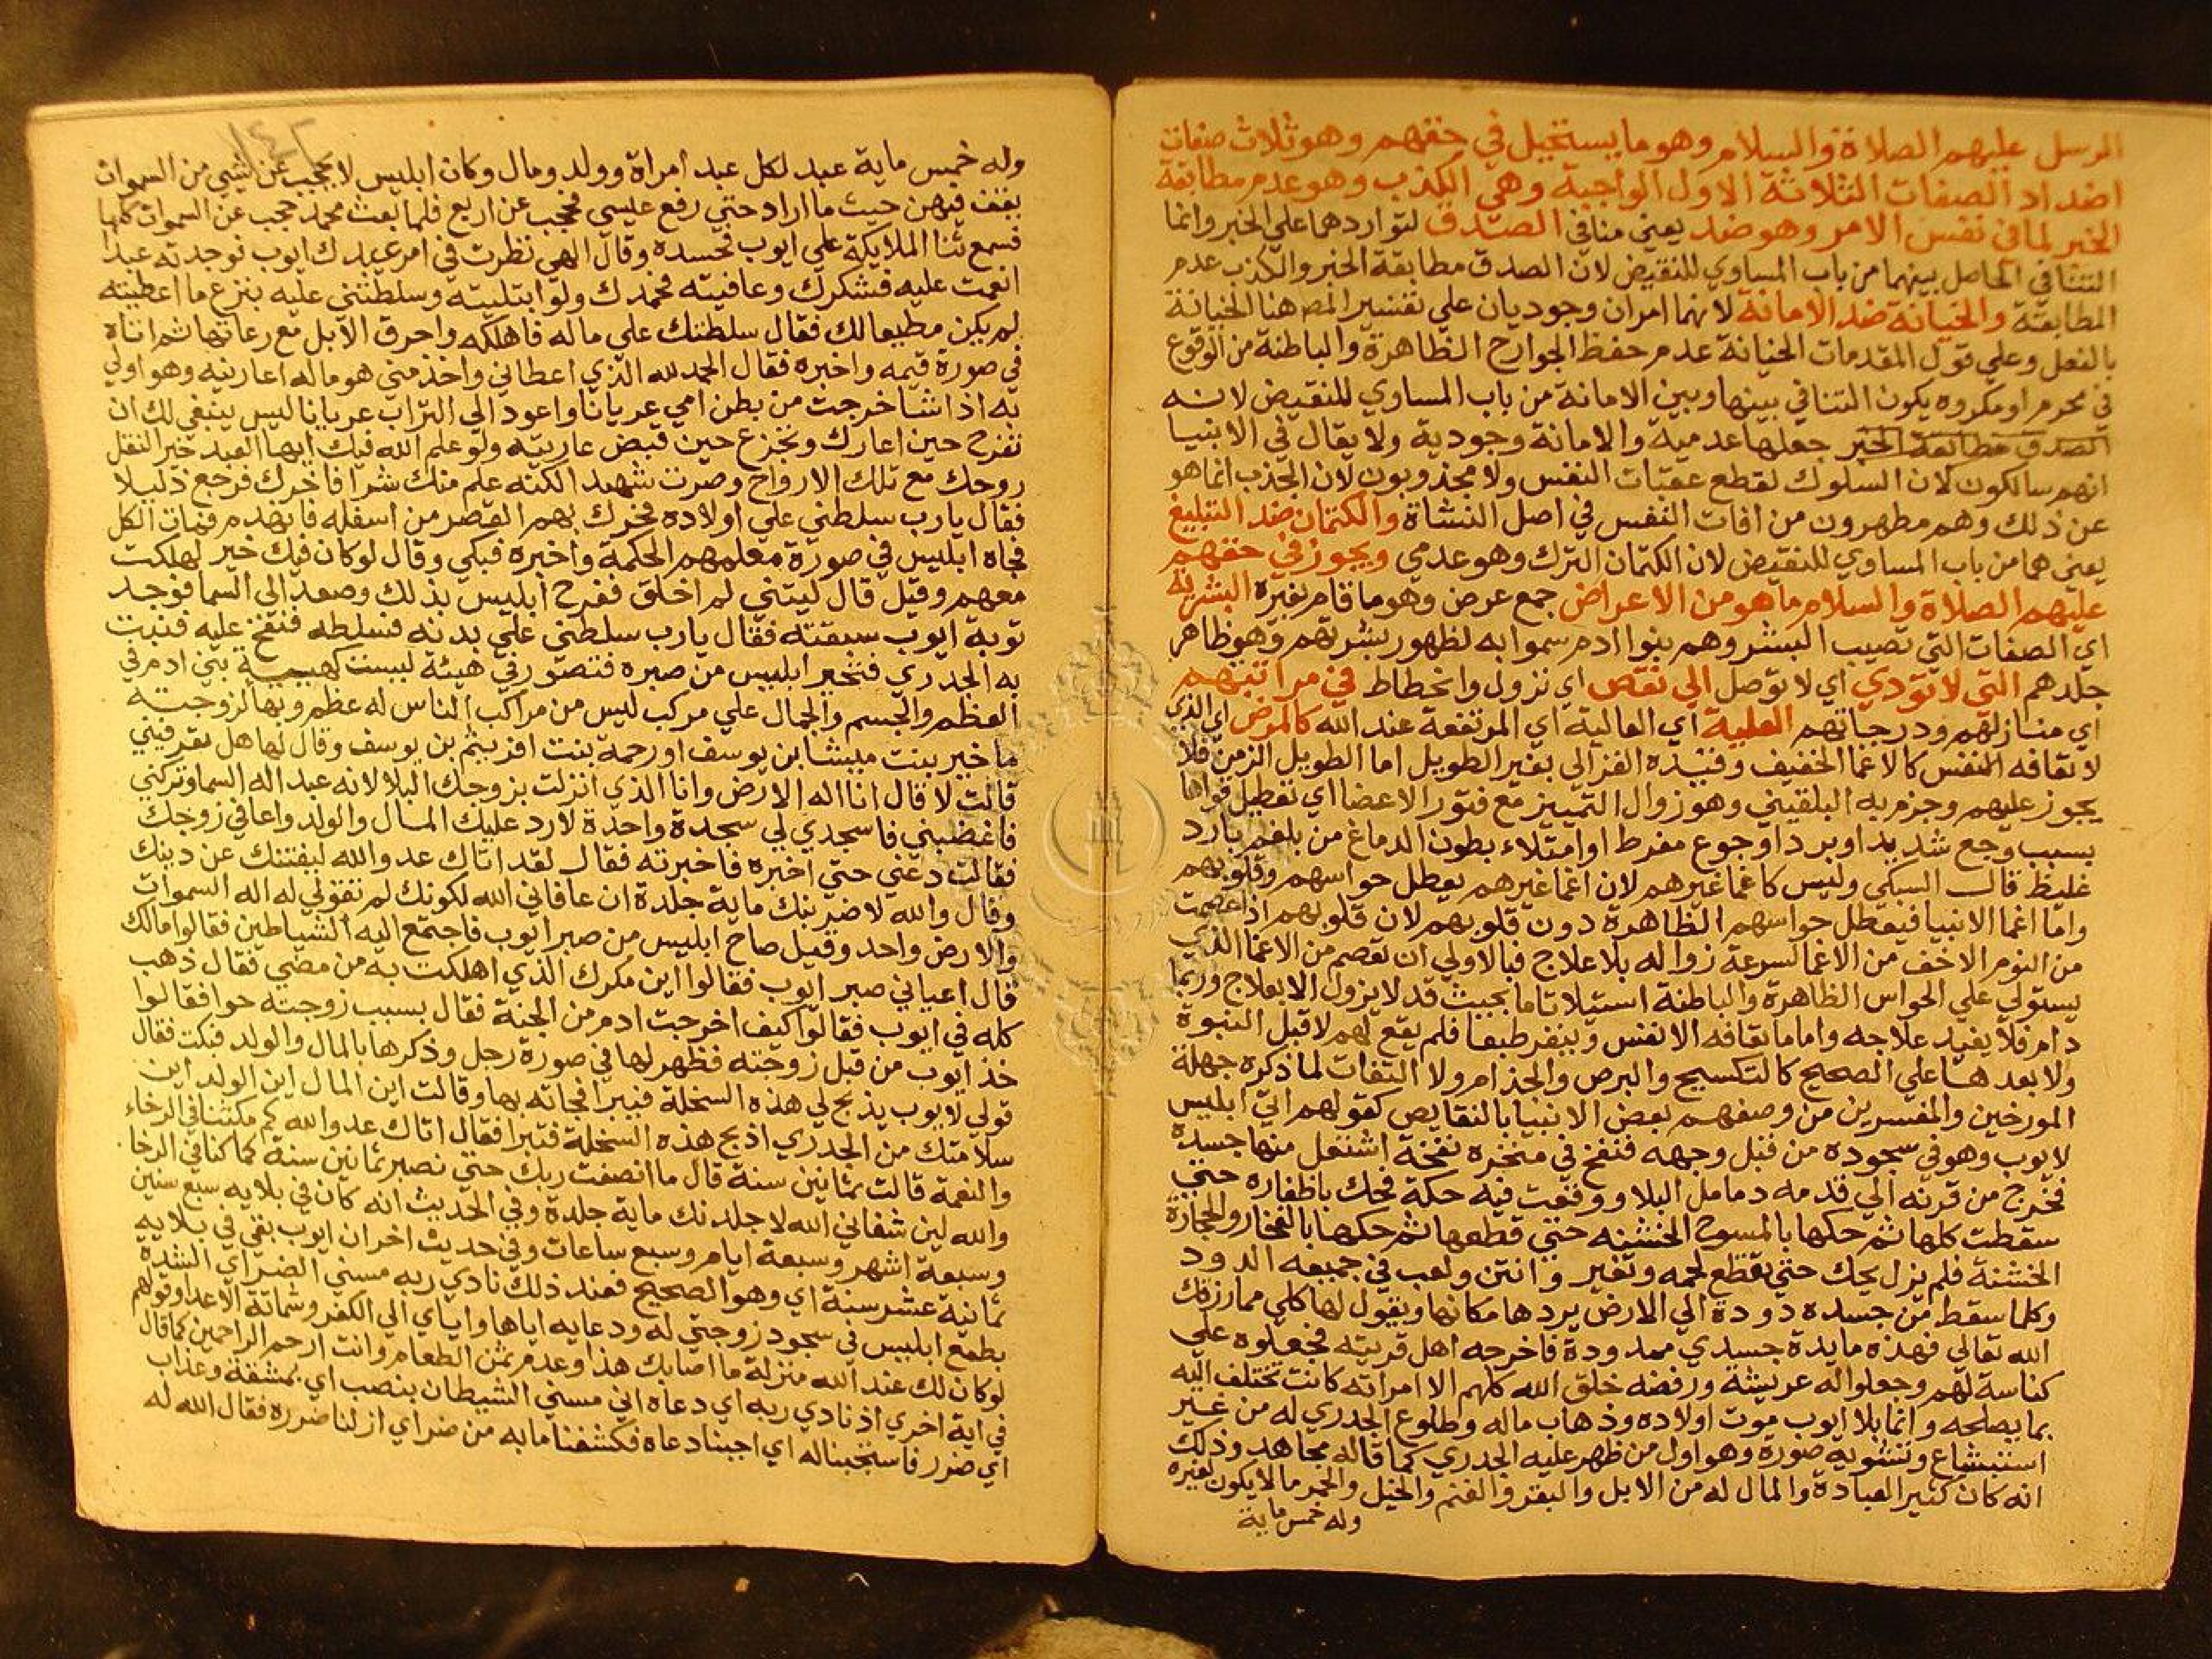 الرسل عليهم الصلاة والسلام وهو ما يستحيل في حقهم وهو ثلاث صفات
اضداد الصفات الثلاثة الاول الواجبة وهي الكذب وهو عدم مطابقة
الخبر لما في نفس الامر وهو ضد يعني منافي الصدق لتواردهما علي الخبر وانما
التنافي الحاصل بينهما من باب المساوي للنقيض لان الصدق مطابقة الخبر والكذب عدم
المطابقة والخيانة ضد الامانة لانهما امران وجوديان علي تفسير المص هنا الخيانة
بالفعل وعلي قول المقدمات الخيانة عدم حفظ الجوارح الظاهرة والباطنة من الوقوع
في محرم او مكروه يكون التنافي بينها وبين الامانة من باب المساوي للنقيض لانه
الصدق مطابقة الخبر جعلها عدمية والامانة وجودية ولا يقال في الانبيا
انهم سالكون لان السلوك لقطع عقبات النفس ولا مجذوبون لان الجذب انما هو
عن ذلك وهم مطهرون من افات النفس في اصل النشاة والكتمان ضد التبليغ
يعني هما من باب المساوي للنقيض لان الكتمان الترك وهو عدمي ويجوز في حقهم
عليهم الصلاة والسلام ما هو من الاعراض جمع عرض وهو ما قام بغيره البشرية
اي الصفات التي تصيب البشر وهم بنوا ادم سموا به لظهور بشرتهم وهو ظاهر
جلدهم التي لا تؤدي اي لا توصل الي نقص اي نزول وانحطاط في مراتبهم
اي منازلهم ودرجاتهم العلية اي العالية اي المرتفعة عند الله كالمرض اي الذي
لا تعافه النفس كالاغما الخفيف وقيده الغزالي بغير الطويل اما الطويل الزمن فلا
يجوز عليهم وجزم به البلقيني وهو زوال التمييز مع فتور الاعضا اي تعطيل قواها
بسبب وجع شديد او برد او جوع مفرط او امتلاء بطون الدماغ من بلغم بارد
غليظ قال السبكي وليس كاغما غيرهم لان اغما غيرهم يعطل حواسهم وقلوبهم
واما اغما الانبيا فيعطل حواسهم الظاهرة دون قلوبهم لان قلوبهم اذا عصمت
من النوم الاخف من الاغما لسرعة زواله بلا علاج فبالاولي ان تعصم من الاغما الذي
يستولي علي الحواس الظاهرة والباطنة استيلا تاما بحيث قد لا يزول الا بعلاج وربما
دام فلا يفيد علاجه واما ما تعافه الانفس وينفر طبعا فلم يقع لهم لا قبل النبوة
ولا بعدها علي الصحيح كالتكسيح والبرص والجذام ولا التفات لما ذكره جهلة
المورخين والمفسرين من وصفهم بعض الانبيا بالنقايص كقولهم اتي ابليس
لايوب وهو في سجوده من قبل وجهه فنفخ في منخره نفخة اشتعل منها جسده
فخرج من قرنه الي قدمه دمامل البلا ووقعت فيه حكة فحك باظفاره حتي
سقطت كلها ثم حكها بالمسوح الخشنه حتي قطعها ثم حكها بالفخار والحجارة
الخشنة فلم يزل يحك حتي تقطع لحمه وتغير وانتن ولعب في جميعه الدود
وكلما سقط من جسده دودة الي الارض يردها مكانها ويقول لها كلي مما رزقك
الله تعالي فهذه مايدة جسدي ممدودة فاخرجه اهل قريته فجعلوه علي
كناسة لهم وجعلوا له عريشة ورفضه خلق الله كلهم الا امراته كانت تختلف اليه
بما يصلحه وانما بلا ايوب موت اولاده وذهاب ماله وطلوع الجدري له من غير
استبشاع وتشويه صورة وهو اول من ظهر عليه الجدري كما قاله مجاهد وذلك
انه كان كثير العبادة والمال له من الابل والبقر والغنم والخيل والحمر ما لا يكون لغيره
وله خمس ماية
١٤٢
وله خمس ماية عبد لكل عبد امراة وولد ومال وكان ابليس لا يحجب عن شيي من السموات
يقف فيهن حيث ما اراد حتي رفع عيسي فحجب عن اربع فلما بعث محمد حجب عن السموات كلها
فسمع ثنا الملايكة علي ايوب فحسده وقال الهي نظرت في امر عبدك ايوب فوجدته عبدا
انعمت عليه فشكرك وعافيته فحمدك ولو ابتليته وسلطتني عليه بنزع ما اعطيته
لم يكن مطيعا لك فقال سلطتك علي ماله فاهلكه واحرق الابل مع رعاتها ثم اتاه
في صورة قيمه واخبره فقال الحمد لله الذي اعطاني واخذ مني هو ماله اعارنيه وهو اولي
به اذا شا خرجت من بطن امي عريانا واعود الي التراب عريانا ليس ينبغي لك ان
تفرح حين اعارك وتجزع حين قبض عاريته ولو علم الله فيك ايها العبد خيرا لنقل
روحك مع تلك الارواح وصرت شهيدا لكنه علم منك شرا فاخرك فرجع ذليلا
فقال يارب سلطني علي اولاده فحرك بهم القصر من اسفله فانهدم فمات الكل
فجاه ابليس في صورة معلمهم الحكمة واخبره فبكي وقال لو كان فيك خير لهلكت
معهم وقيل قال ليتني لم اخلق ففرح ابليس بذلك وصعد الي السما فوجد
توبة ايوب سبقته فقال يارب سلطني علي بدنه فسلطه فنفخ عليه فنبت
به الجدري فتحير ابليس من صبره فتصور في هيئة ليست كهيئة بني ادم في
العظم والجسم والجمال علي مركب ليس من مراكب الناس له عظم وبها لزوجته
ما خير بنت ميشا بن يوسف او رحمة بنت افريثم بن يوسف وقال لها هل تعرفيني
قالت لا قال انا اله الارض وانا الذي انزلت بزوجك البلا لانه عبد اله السما وتركني
فاغضبني فاسجدي لي سجدة واحدة لارد عليك المال والولد واعافي زوجك
فقالت دعني حتي اخبره فاخبرته فقال لقد اتاك عدو الله ليفتنك عن دينك
وقال والله لاضربنك ماية جلدة ان عافاني الله لكونك لم تقولي له اله السموات
والارض واحد وقيل صاح ابليس من صبر ايوب فاجتمع اليه الشياطين فقالوا مالك
قال اعياني صبر ايوب فقالوا اين مكرك الذي اهلكت به من مضي فقال ذهب
كله في ايوب فقالوا كيف اخرجت ادم من الجنة فقال بسبب زوجته حوا فقالوا
خذ ايوب من قبل زوجته فظهر لها في صورة رجل وذكرها بالمال والولد فبكت فقال
قولي لايوب يذبح لي هذه السخلة فيبرا فجاته بها وقالت اين المال اين الولد اين
سلامتك من الجدري اذبح هذه السخلة فتبرا فقال اتاك عدو الله كم مكثنا في الرخاء
والنعمة قالت ثمانين سنة قال ما انصفت ربك حتي نصبر ثمانين سنة كما كنا في الرخا
والله لين شفاني الله لاجلدنك ماية جلدة وفي الحديث انه كان في بلايه سبع سنين
وسبعة اشهر وسبعة ايام وسبع ساعات وفي حديث اخر ان ايوب بقي في بلايه
ثمانية عشر سنة اي وهو الصحيح فعند ذلك نادي ربه مسني الضر اي الشدة
بطمع ابليس في سجود زوجتي له ودعايه اياها واياي الي الكفر وشماتة الاعدا وقولهم
لو كان لك عند الله منزلة ما اصابك هذا وعدم ثمن الطعام وانت ارحم الراحمين كما قال
في اية اخري اذ نادي ربه اي دعاه اني مسني الشيطان بنصب اي بمشقة وعذاب
اي ضرر فاستجبنا له اي اجبنا دعاه فكشفنا ما به من ضر اي ازلنا ضرره فقال الله له